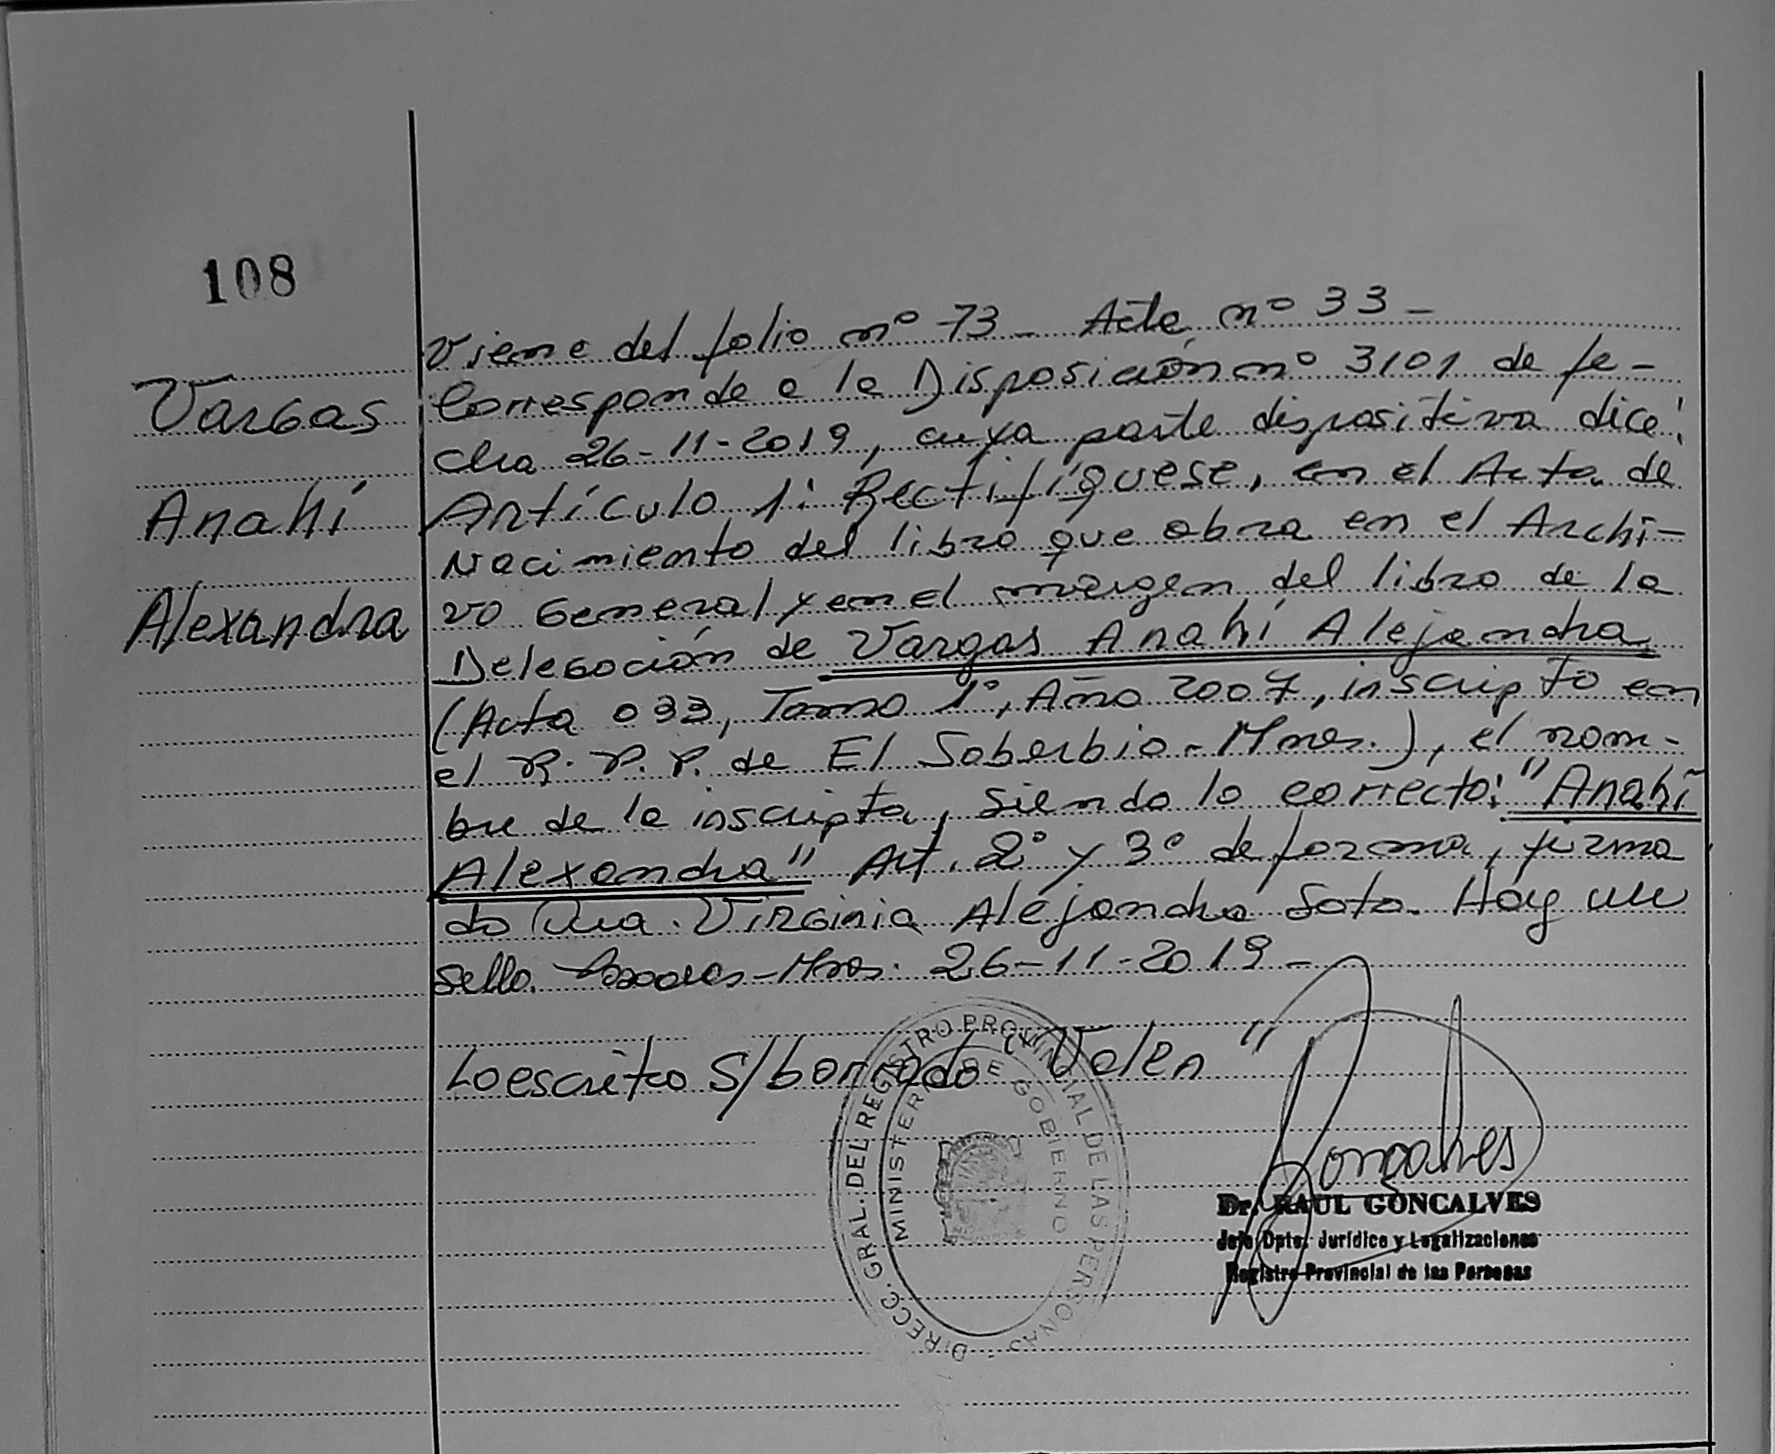 108
Vargas
Anahí
Alexandra
Viene del folio nº 73 - Acta nº 33 -
Corresponde a la Disposición nº 3101 de fe-
cha 26-11-2019, cuya parte dispositiva dice:
Artículo 1: Rectifíquese, en el Acta de
Nacimiento del libro que obra en el Archi-
vo General y en el margen del libro de la
Delegación de Vargas Anahí Alejandra
(Acta 033, Tomo 1°, Año 2007, inscripto en
el R. P. P. de El Soberbio - Mnes.), el nom-
bre de la inscripta, siendo lo correcto: "Anahí
Alexandra" Art. 2° y 3° de forma, firma
do Dra. Virginia Alejandra Soto. Hay un
sello. Posadas - Mnes. 26-11-2019 -
Lo escrito S/borrado "Valen"
DIRECC. GRAL. DEL REGISTRO PROVINCIAL DE LAS PERSONAS
MINISTERIO DE GOBIERNO
Gonçalves
Dr. RAUL GONCALVES
Jefe Dpto. Jurídico y Legalizaciones
Registro Provincial de las Personas